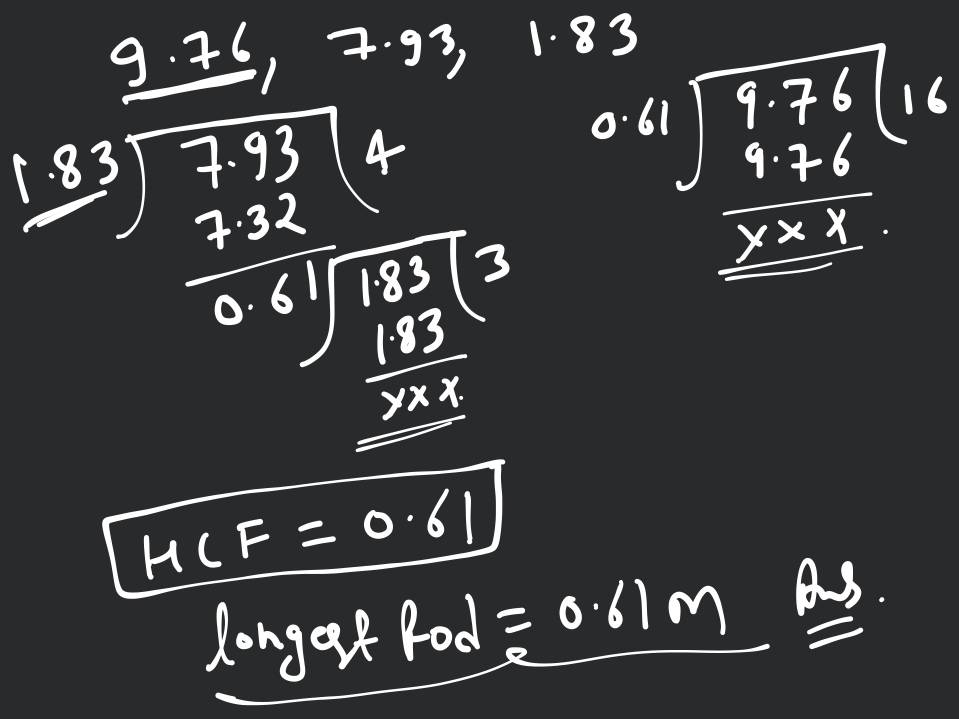 9.76, 7.93, 1.83
1.83) 7.93 (4
7.32
0.61) 1.83 (3
1.83
xxx.
0.61) 9.76 (16
9.76
xxx.
HCF = 0.61
longest Rod = 0.61 m Ans.